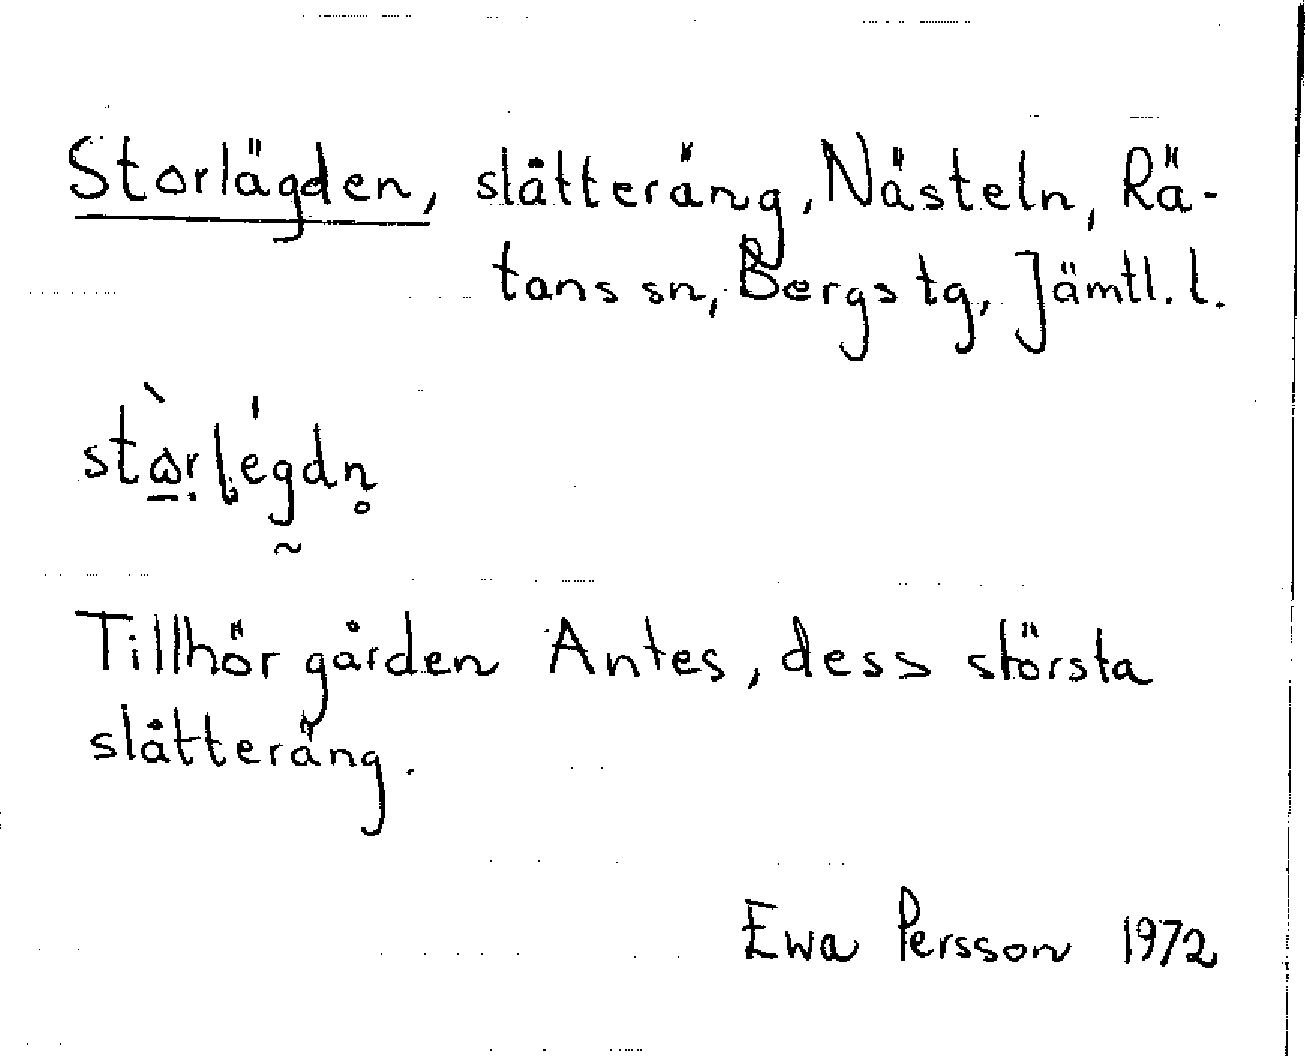 Storlägden, slåtteräng, Nästeln, Rä-
tans sn, Bergs tg, Jämtl. l.
stɷ̠̀rlégdn̥
Tillhör gården Antes, dess största
slåtteräng.
Ewa Persson 1972